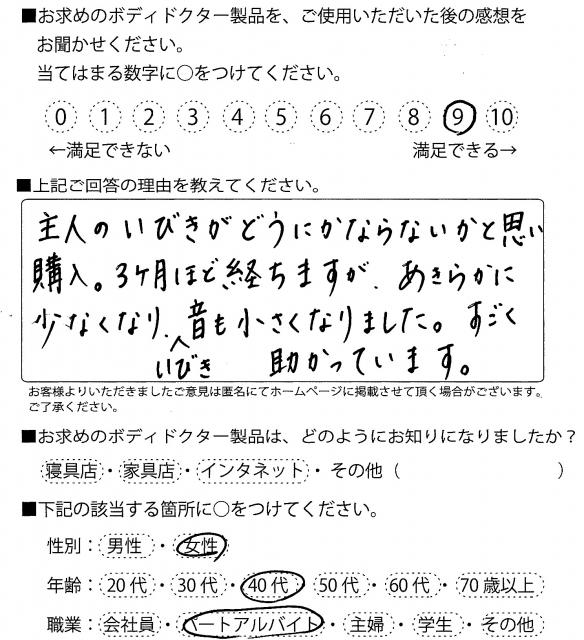 ■お求めのボディドクター製品を、ご使用いただいた後の感想を
お聞かせください。
当てはまる数字に○をつけてください。
0 1 2 3 4 5 6 7 8 9 10
←満足できない 満足できる→
■上記ご回答の理由を教えてください。
主人のいびきがどうにかならないかと思い
購入。3ケ月ほど経ちますが、あきらかに
少なくなり、音も小さくなりました。すごく
いびき 助かっています。
お客様よりいただきましたご意見は匿名にてホームページに掲載させて頂く場合がございます。
ご了承ください。
■お求めのボディドクター製品は、どのようにお知りになりましたか?
寝具店・家具店・インタネット・その他（　　　）
■下記の該当する箇所に○をつけてください。
性別：男性・女性
年齢：20代・30代・40代・50代・60代・70歳以上
職業：会社員・パートアルバイト・主婦・学生・その他